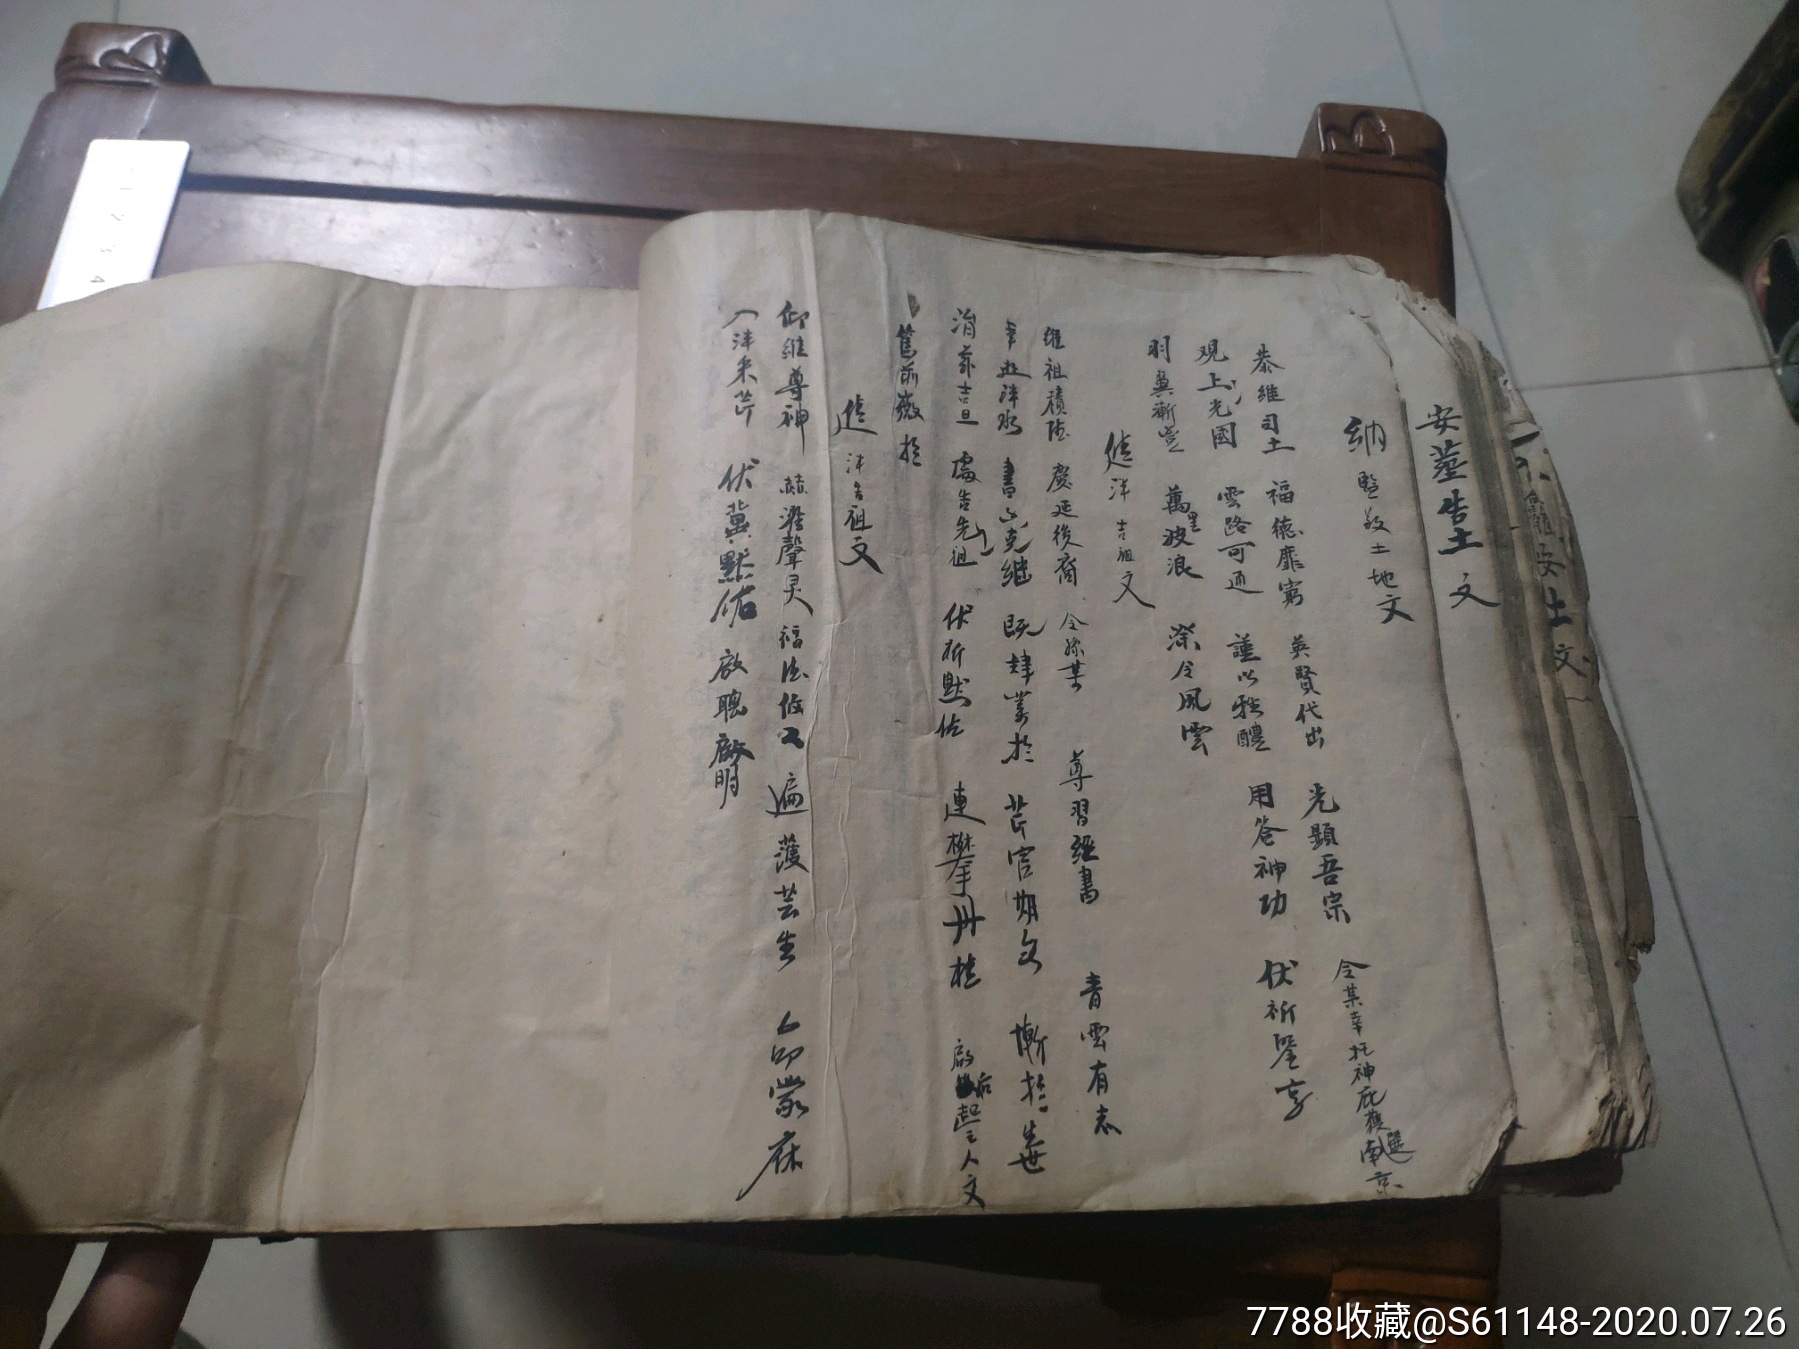 安土文
安墓告土文
納監敬土地文
恭維司土 福德靡窮 英賢代出 光顯吾宗 今某幸托神庇獲選南京
观上光國 雲路可通 謹以牲醴 用答神功 伏祈鑒享
羽異漸豐 萬里波浪 際今風雲
進泮吉祖文
維祖積德 慶延後裔 今孫某 尊習經書 青雲有志
幸遊泮水 書克繼 既肄業於 芹宮期文 慚於先世
涓茲吉旦 虔告先祖 伏祈默佑 連攀丹桂 啟后起之人文
篤前徽於
進泮告祖文
仰維尊神 赫濯聲灵 福德攸 遍護芸生 仰蒙庥
入泮采芹 伏冀默佑 啟聰啟明
7788收藏@S61148-2020.07.26